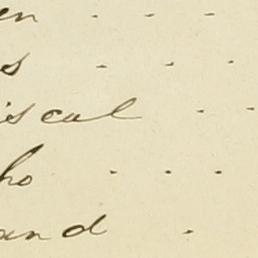 en . . .
s . . .
iscal . .
ho . . .
and .